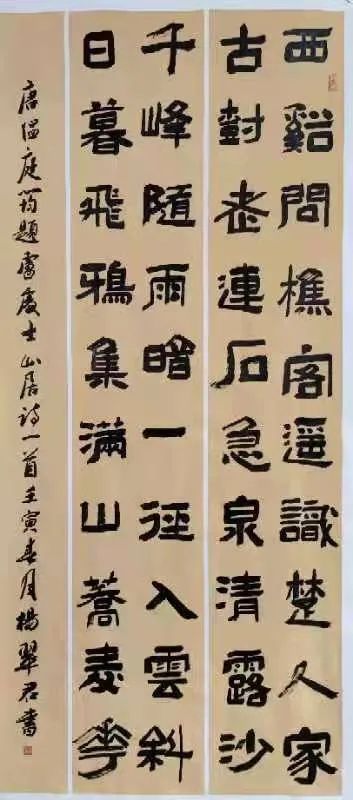 西谿問樵客遥識楚人家
古尌老連石急泉清露沙
千峰隨雨暗一徑入雲斜
日暮飛鴉集滿山蕎麦花
唐温庭筠題盧處士山居诗一首壬寅春月楊翠君書